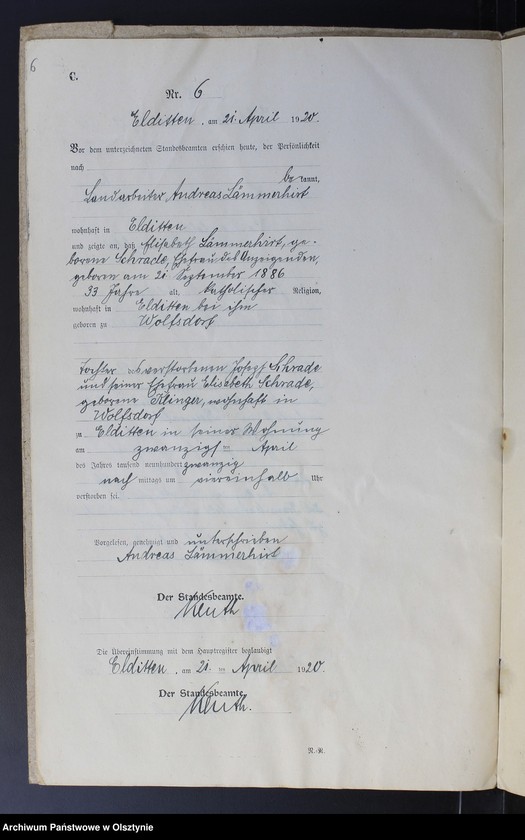 6
C.
Nr. 6
Elditten, am 21. April 1920.
Vor dem unterzeichneten Standesbeamten erschien heute, der Persönlichkeit
nach
bekannt,
Landarbeiter Andreas Lämmerhirt
wohnhaft in Elditten
und zeigte an, daß Elisabeth Lämmerhirt, ge-
borene Schrade, Ehefrau des Anzeigenden,
geboren am 21. September 1886
33 Jahre alt, katholischer Religion,
wohnhaft in Elditten bei ihm
geboren zu Wolfsdorf
Tochter des verstorbenen Josef Schrade
und seiner Ehefrau Elisabeth Schrade,
geborene Klinger, wohnhaft in
Wolfsdorf
zu Elditten in seiner Wohnung
am zwanzigsten April
des Jahres tausend neunhundert zwanzig
nachmittags um viereinhalb Uhr
verstorben sei.
Vorgelesen, genehmigt und unterschrieben
Andreas Lämmerhirt
Der Standesbeamte.
Die Übereinstimmung mit dem Hauptregister beglaubigt
Elditten, am 21. ten April 1920.
Der Standesbeamte.
Archiwum Państwowe w Olsztynie